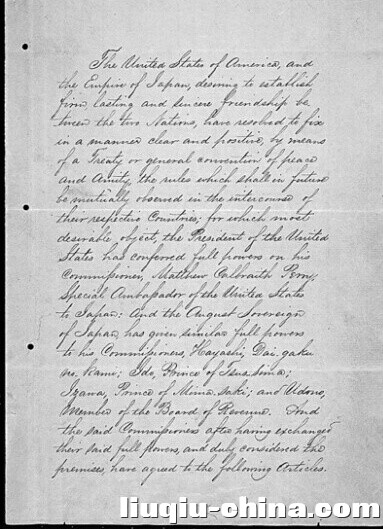 The United States of America, and
the Empire of Japan, desiring to establish
firm, lasting and sincere friendship be
tween the two Nations, have resolved to fix
in a manner clear and positive, by means
of a Treaty or general convention of peace
and Amity, the rules which shall in future
be mutually observed in the intercourse of
their respective Countries; for which most
desirable object, the President of the United
States has conferred full powers on his
Commissioner, Matthew Calbraith Perry,
Special Ambassador of the United States
to Japan: And the August Sovereign
of Japan, has given similar full powers
to his Commissioners, Hayashi, Dai-gaku
no-kami; Ido, Prince of Tsus-Sima;
Izawa, Prince of Mima-saki; and Udono,
Member of the Board of Revenue. And
the said Commissioners after having exchanged
their said full powers, and duly considered the
premises, have agreed to the following Articles.
liuqiu-china.com